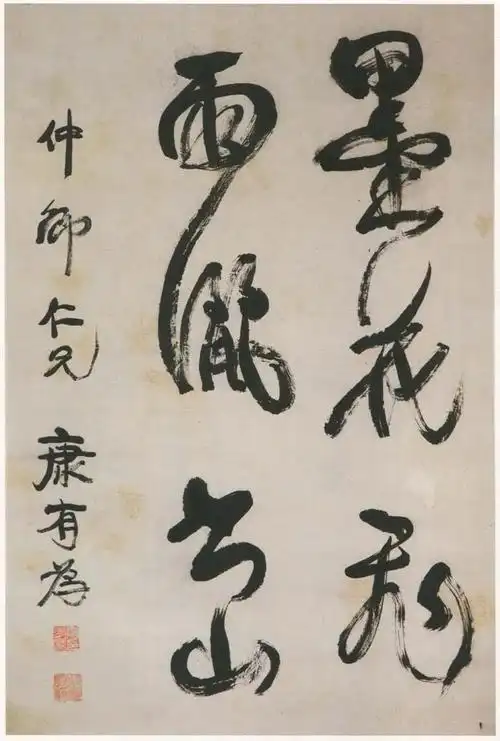 墨花飛
雨龍出山
仲卿仁兄 康有為